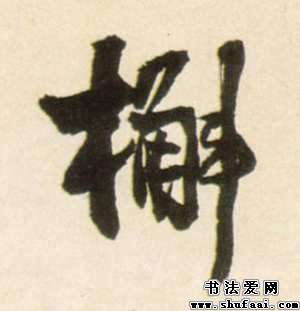 槲
书法爱网
www.shufaai.com